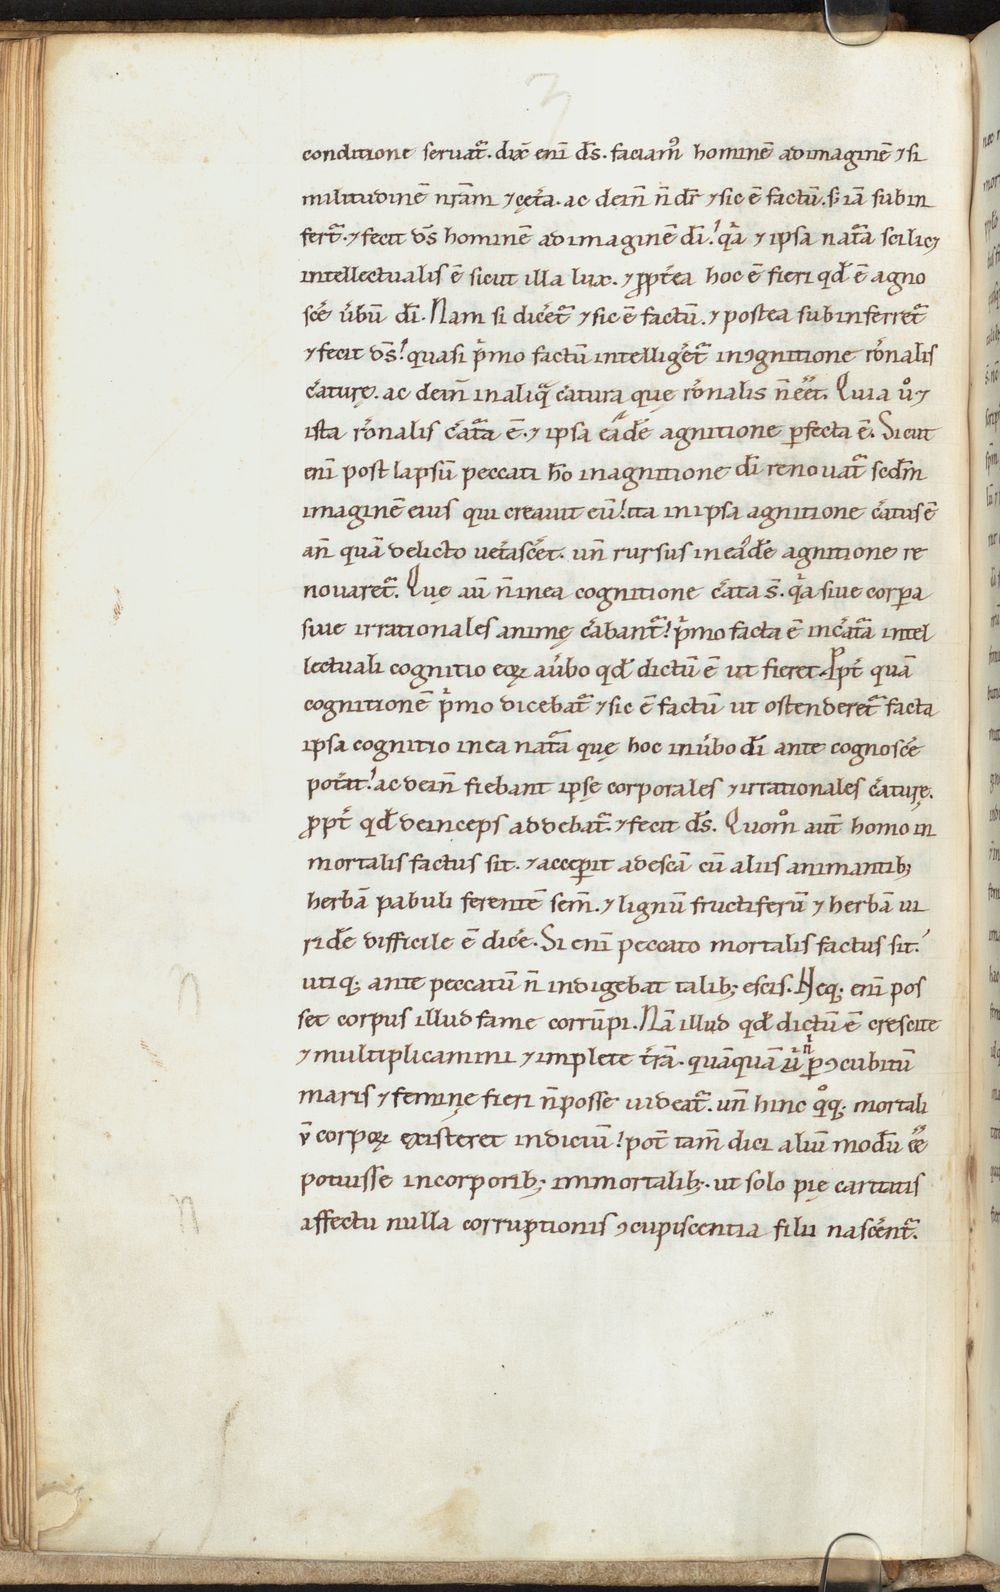 conditione seruat᷑. dix̄ eni᷑ d̄s. faciam᷒ hominē ad imaginē ⁊ si
militudinē nr̄am ⁊ cęt᷑a. ac dein̄ n̄ dr̄ ⁊ sic ē factū. s; iā subin
fert᷑. ⁊ fecit d̄s hominē ad imaginē dī. q᷑a ⁊ ipsa nat᷑a scilic;
intellectualis ē sicut illa lux. ⁊ ꝓpt᷑ea hoc ē fieri qd̄ ē agno
sc᷑e u᷑bū dī. Nam si dic᷑et᷑ ⁊ sic ē factū. ⁊ postea subinferret᷑
⁊ fecit d̄s. quasi p᷑mo factū intellig᷑et᷑ in ꝯgnitione r̄onalis
c᷑aturę. ac dein̄ in aliq᷑ c᷑atura que r̄onalis n̄ ēēt. Quia u᷒ ⁊
ista r̄onalis c᷑at᷑a ē. ⁊ ipsa eādē agnitione ꝑfecta ē. Sicut
eni᷑ post lapsū peccati hō in agnitione dī renouat᷑ secdm̄
imaginē eius qui creauit eū. ita in ipsa agnitione c᷑atus ē
an̄ quā delicto uet᷑asc᷑et. un̄ rursus in eādē agnitione re
nouaret᷑. Quę aū n̄ in ea cognitione c᷑ata s̄. q᷑a siue corꝑa
siue irrationales animę c᷑abant᷑. p᷑mo facta ē in c᷑at᷑a intel
lectuali cognitio eoꝝ a u᷑bo qd̄ dictū ē ut fieret. Ppt᷑ quā
cognitionē p᷑mo dicebat᷑ ⁊ sic ē factū ut ostenderet᷑ facta
ipsa cognitio in ea nat᷑a quę hoc in u᷑bo dī ante cognosc᷑e
pot᷑at. ac dein̄ fiebant ipsę corporales ⁊ irrationales c᷑aturę.
ꝓpt᷑ qd̄ deinceps addebat᷑. ⁊ fecit d̄s. Quom᷒ aut̄ homo in
mortalis factus sit. ⁊ acceꝑit ad escā cū aliis animantib;
herbā pabuli ferentē sem̄. ⁊ lignū fructiferū ⁊ herbā ui
ridē difficile ē dic᷑e. Si eni᷑ peccato mortalis factus sit.
utiq; ante peccatū n̄ indigebat talib; escis. Neq; eni᷑ pos
set corpus illud fame corrūpi. Nā illud qd̄ dictū ē crescite
⁊ multiplicamini ⁊ implete t᷑rā. quāquā n̄ ꝑ ꝯcubitū
maris ⁊ feminę fieri n̄ posse uideat᷑. un̄ hinc q᷒q; mortali
ū corpoꝝ existeret indiciū. pot᷑ tam̄ dici aliū modū ēē
potuisse in corporib; immortalib;. ut solo pię caritatis
affectu nulla corruptionis ꝯcupiscentia filii nasc᷑ent᷑.